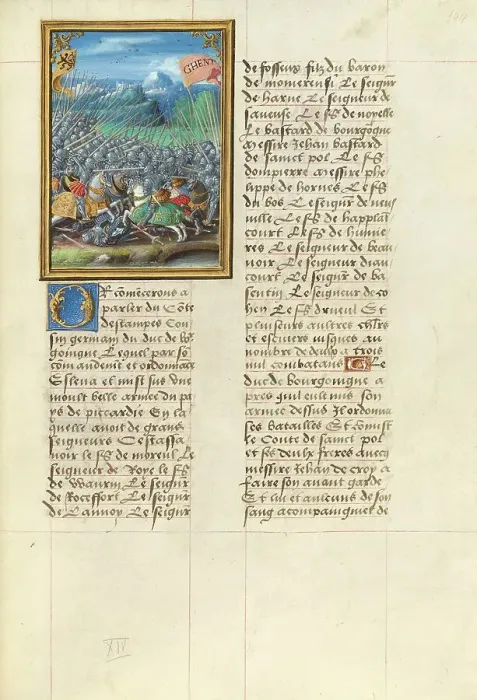 GHENT
Or com̄encerons a
parler du Cōte
destampes Cou
sin germain du duc de bō
goingne Lequel par sō
com̄andemēt et ordonnāce
Esleua et mist sus vne
moult belle armee du pa
ys de piccardie En la
quelle auoit de grans
seigneurs Cestassa
voir le sr̄ de moreul Le
seigneur de Roye le sr̄
de Waurin Le seigūr
de Roceffort Le seigūr
de Lannoy Le seigūr
de fosseus filz du baron
de momerensi Le seigūr
de harne Le seigneur de
saueuse Le sr̄ de noyelle
Le bastard de bourgogne
messire Jehan bastard
de sainct pol Le sr̄
dompierre messire phe
lippe de hornes Le sr̄
du bos Le seigūr de neuf
ville Le sr̄ de happlai
court Le sr̄ de humie
res Le seigneur de beau
voir Le seigneur diau
court Le seigūr de ba
sentin Le seigneur de co
hen Le sr̄ dreuel Et
plusieurs aultres chlr̄s
et escuiers iusques au
nombre de deux a trois
mil combatans Le
duc de bourgoingne a
pres quil eut mis son
armee dessus Il ordonna
ses batailles Et com̄ist
le Conte de sainct pol
et ses deulx freres auecq
messire Jehan de croy a
faire son auant garde
Et lui et aulcuns de son
sang acompaingniet de
XIV